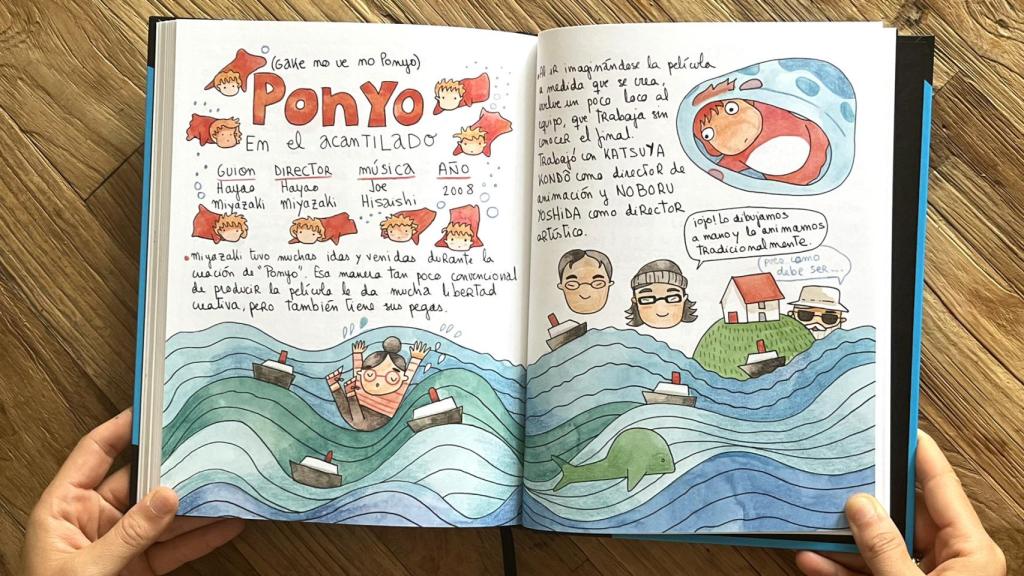 (Gake no ue no Ponyo)
PONYO
EN EL ACANTILADO
GUION DIRECTOR MÚSICA AÑO
Hayao Hayao Joe 2008
Miyazaki Miyazaki Hisaishi
Miyazaki tuvo muchas idas y venidas durante la
creación de "Ponyo". Esa manera tan poco convencional
de producir la película le da mucha libertad
creativa, pero también tiene sus pegas.
ir imaginándose la película
a medida que se crea,
vuelve un poco loco al
equipo, que trabaja sin
conocer el final.
Trabajó con KATSUYA
KONDO como director de
animación y NOBORU
YOSHIDA como director
artístico.
¡ojo! Lo dibujamos
a mano y lo animamos
tradicionalmente.
(pues como
debe ser...